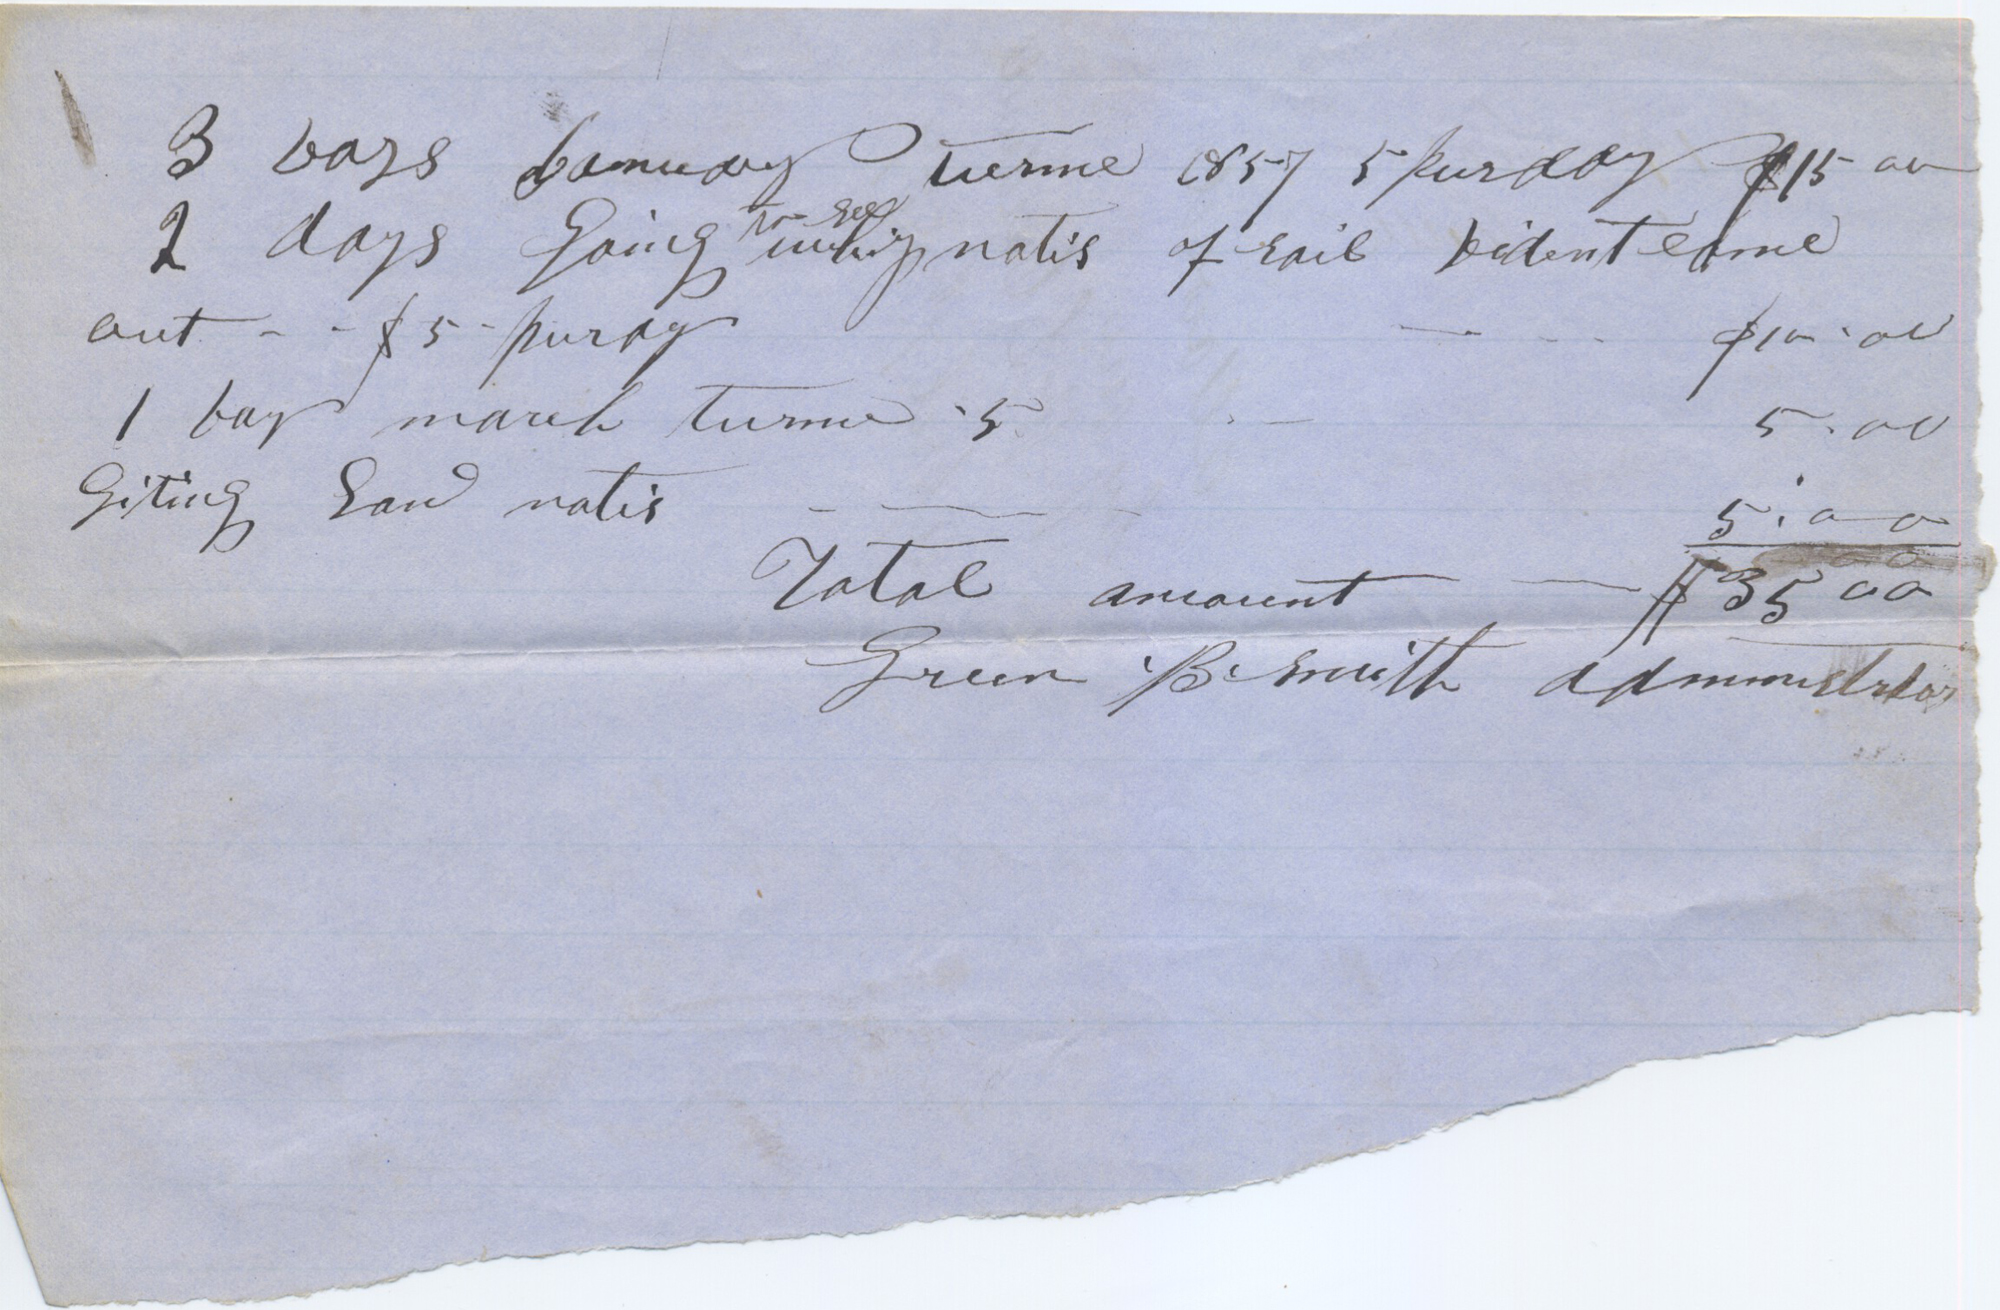 3 days January turme 1857 5 pur day $15 00
2 days Going to see natis of sail dident come
out - - $5 - pur day - - - $10.00
1 day march turme .5 - 5.00
Giting Law natis - - - 5.00
Total amount - $35 00
Green B. Smith administrator